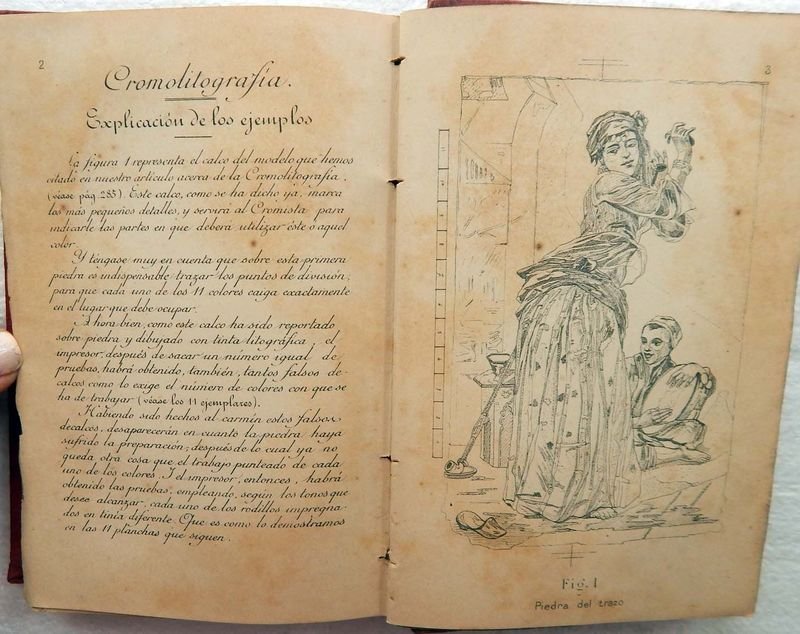 2
Cromolitografía.
Explicación de los ejemplos
La figura 1 representa el calco del modelo que hemos
citado en nuestro artículo acerca de la Cromolitografía,
(véase pág 285). Este calco, como se ha dicho ya, marca
los más pequeños detalles, y servirá al Cromista para
indicarle las partes en que deberá utilizar éste o aquel
color.
Y téngase muy en cuenta que sobre esta primera
piedra es indispensable trazar los puntos de división;
para que cada uno de los 11 colores caiga exactamente
en el lugar que debe ocupar.
Ahora bien, como este calco ha sido reportado
sobre piedra y dibujado con tinta litográfica, el
impresor, después de sacar un número igual de
pruebas, habrá obtenido, también, tantos falsos de-
calcos como lo exige el número de colores con que se
ha de trabajar (véase los 11 ejemplares).
Habiendo sido hechos al carmín estos falsos
decalcos, desaparecerán en cuanto la piedra haya
sufrido la preparación; después de lo cual ya no
queda otra cosa que el trabajo punteado de cada
uno de los colores. Y el impresor, entonces, habrá
obtenido las pruebas, empleando, según los tonos que
desee alcanzar, cada uno de los rodillos impregna-
dos en tinta diferente. Que es como lo demostramos
en las 11 planchas que siguen.
3
Fig. 1
Piedra del trazo